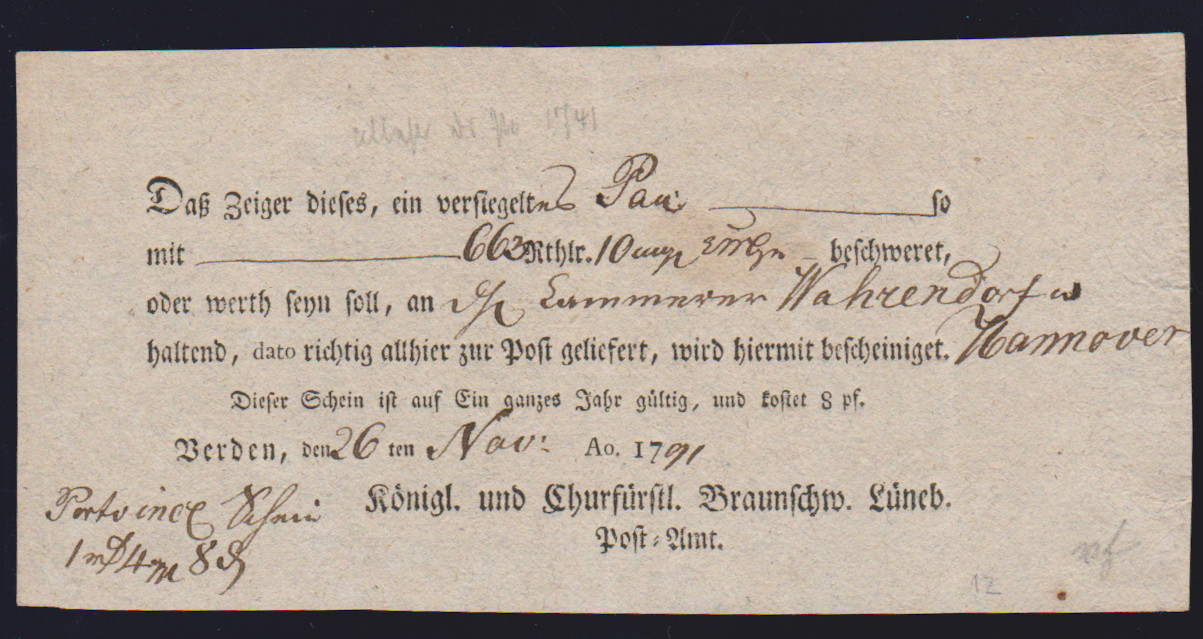 1741
Daß Zeiger dieses, ein versiegeltes Pau: so
mit 663 Rthlr. 10 beschweret,
oder werth seyn soll, an Cammerer Wahrendorf
haltend, dato richtig allhier zur Post geliefert, wird hiermit bescheiniget. Hannover
Dieser Schein ist auf Ein ganzes Jahr gültig, und kostet 8 pf.
Verden, den 26 ten Nov: Ao. 1791
Königl. und Churfürstl. Braunschw. Lüneb.
Post-Amt.
Porto incl Schein
1 4 8
12